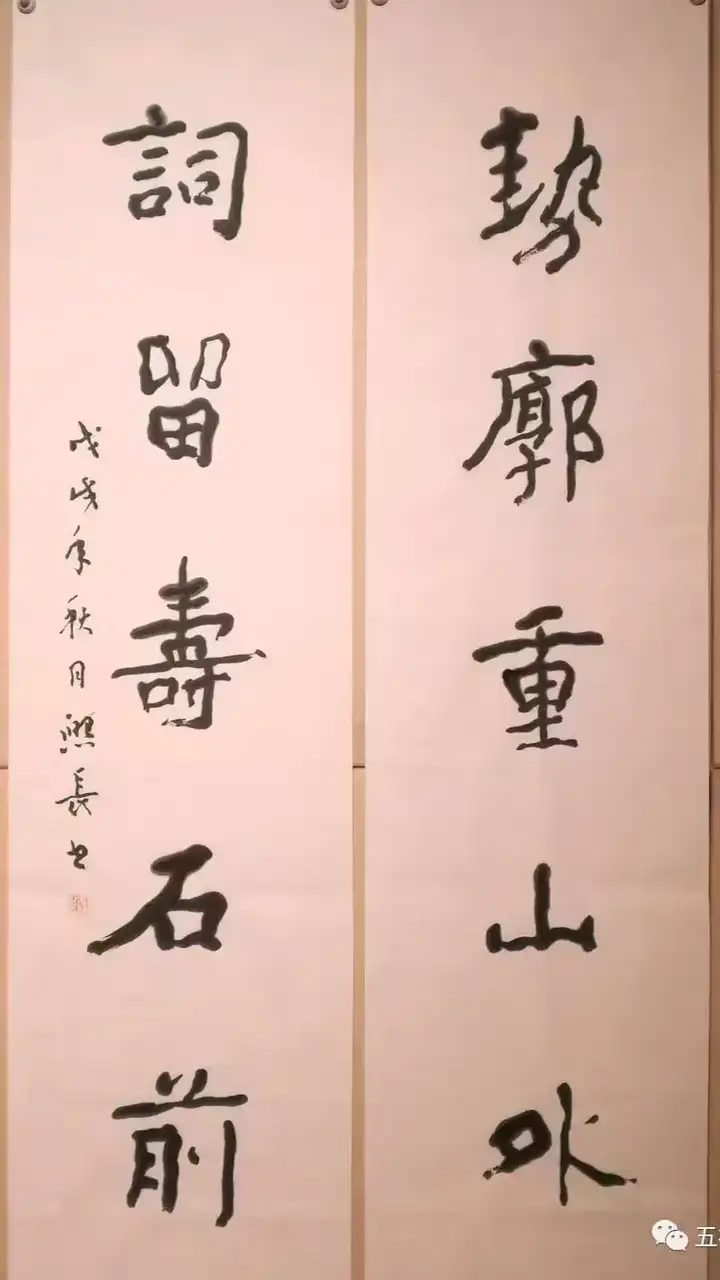 勢廓重山外
詞留壽石前
戊戌年秋月熙長书
五